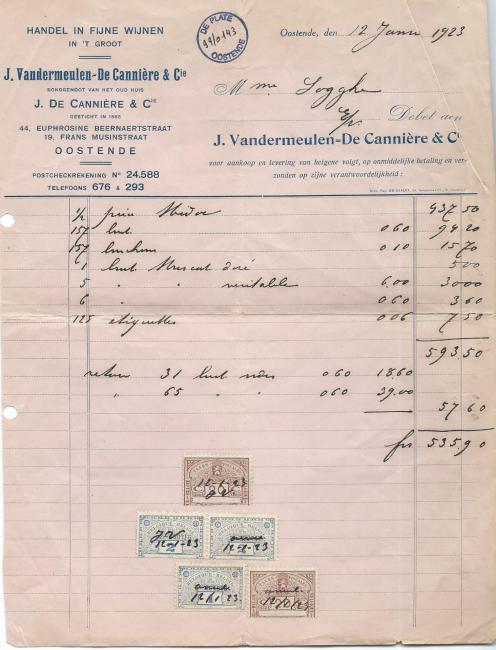 HANDEL IN FIJNE WIJNEN
IN 'T GROOT
J. Vandermeulen-De Cannière & Cie
BONDGENOOT VAN HET OUD HUIS
J. DE CANNIÈRE & CIE
GESTICHT IN 1885
44, EUPHROSINE BEERNAERTSTRAAT
19, FRANS MUSINSTRAAT
OOSTENDE
POSTCHEKREKENING No 24.588
TELEFOONS 676 & 293
DE PLATE
OOSTENDE
Oostende, den 12 Janvr 1923
Mme
Debet aan
J. Vandermeulen-De Cannière & Cie
voor aankoop en levering van hetgene volgt, op onmiddelijke betaling en ver-
zonden op zijne verantwoordelijkheid :
1/2 937 50
157 060 94 20
157 010 15 70
1 Muscat doré 500
5 " " véritable 6.00 3000
6 " 060 360
125 etiquettes 006 7 50
593.50
retour 31 060 18.60
" 65 " 060 39.00
57 60
frs 535.90
12-1-23
12-1-23
12-1-23
12/1 23